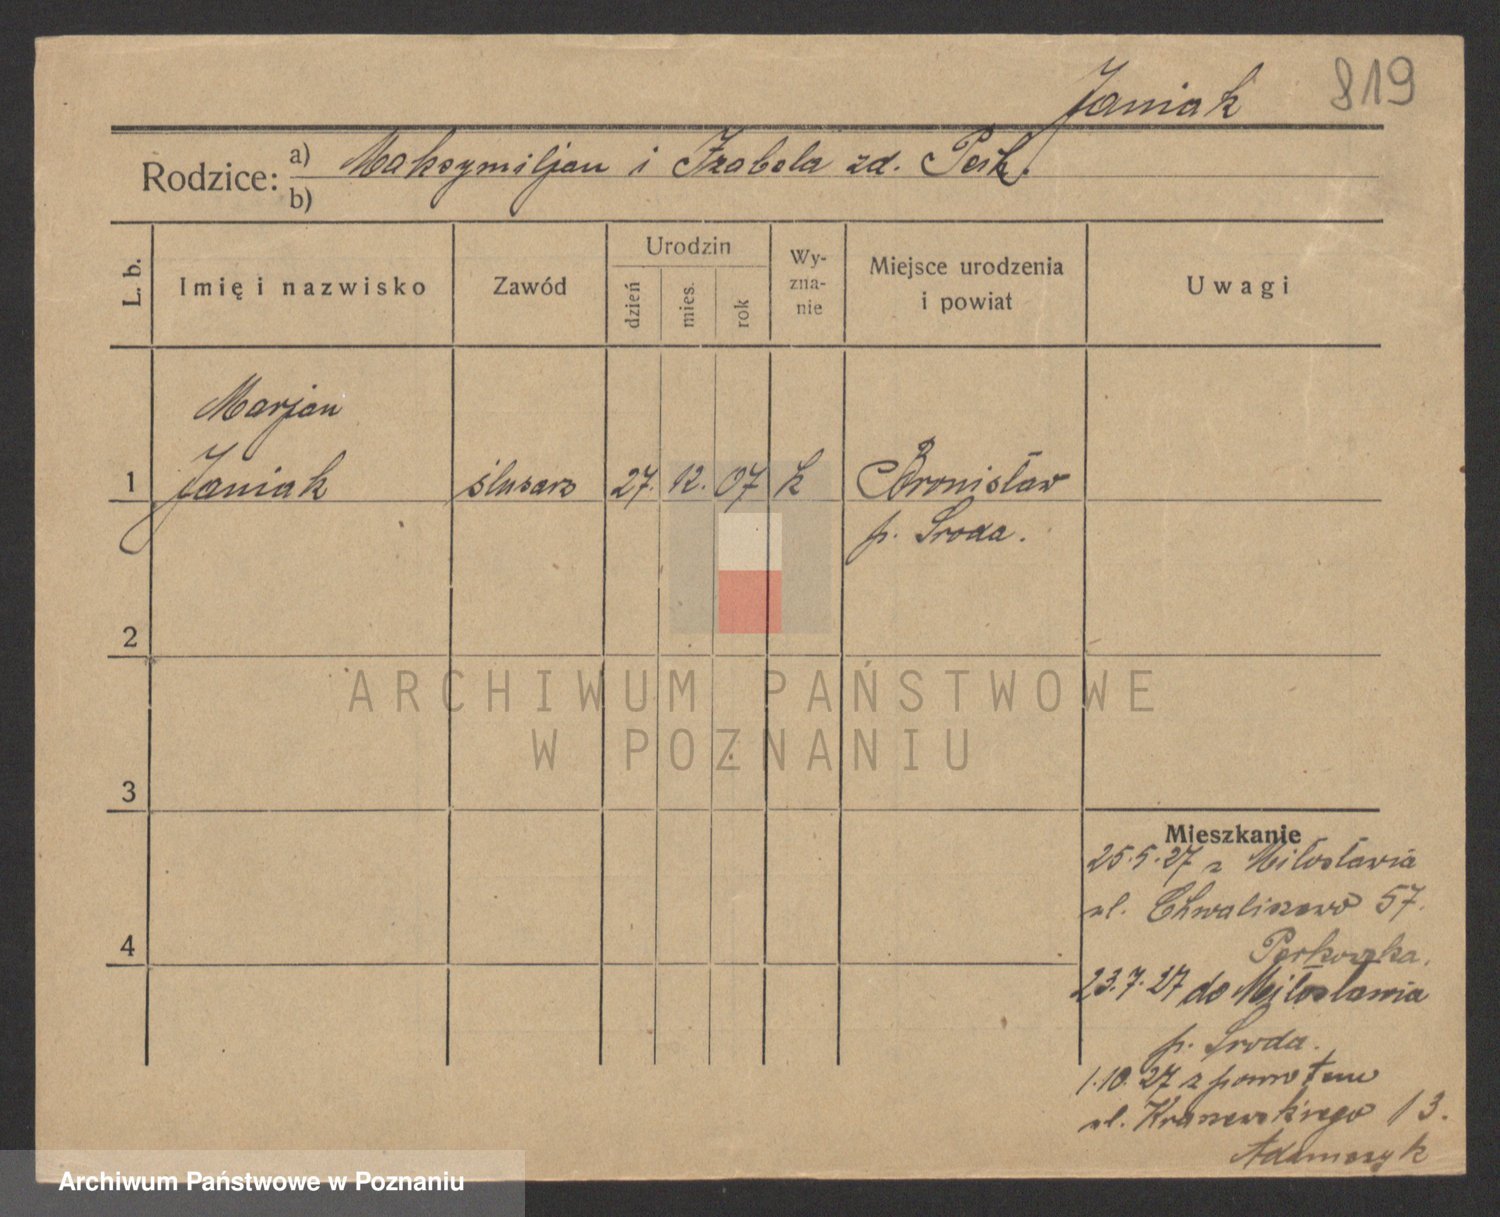 Janiak 819
Rodzice: a) Maksymiljan i Izabela zd. Perk.
b)
L. b. Imię i nazwisko Zawód Urodzin dzień mies. rok Wy-zna-nie Miejsce urodzenia i powiat Uwagi
Marjan
1 Janiak ślusarz 27. 12. 07 k Bronisław
p. Środa.
2
ARCHIWUM PAŃSTWOWE
W POZNANIU
3
Mieszkanie
25.5.27 z Miłosławia
4
ul. Chwaliszewo 57.
Perkowska.
23.7.27 do Miłosławia
p. Środa.
1.10.27 z powrotem
ul. Kraszewskiego 13.
Adamczyk
Archiwum Państwowe w Poznaniu